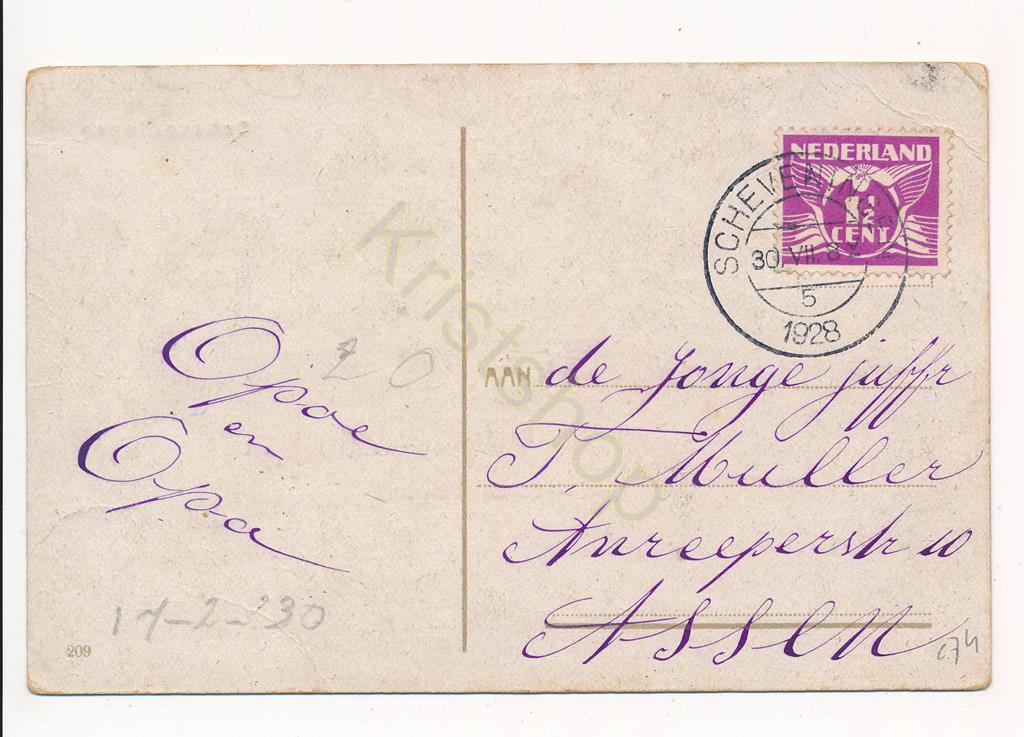 NEDERLAND
1½
CENT
SCHEVENINGEN
30.VII.8
5
1928
Opoe
en
Opa
AAN de Jonge juffr
T. Muller
Anreeperstr 10
Assen
20
17-2-230
209
Kristshop